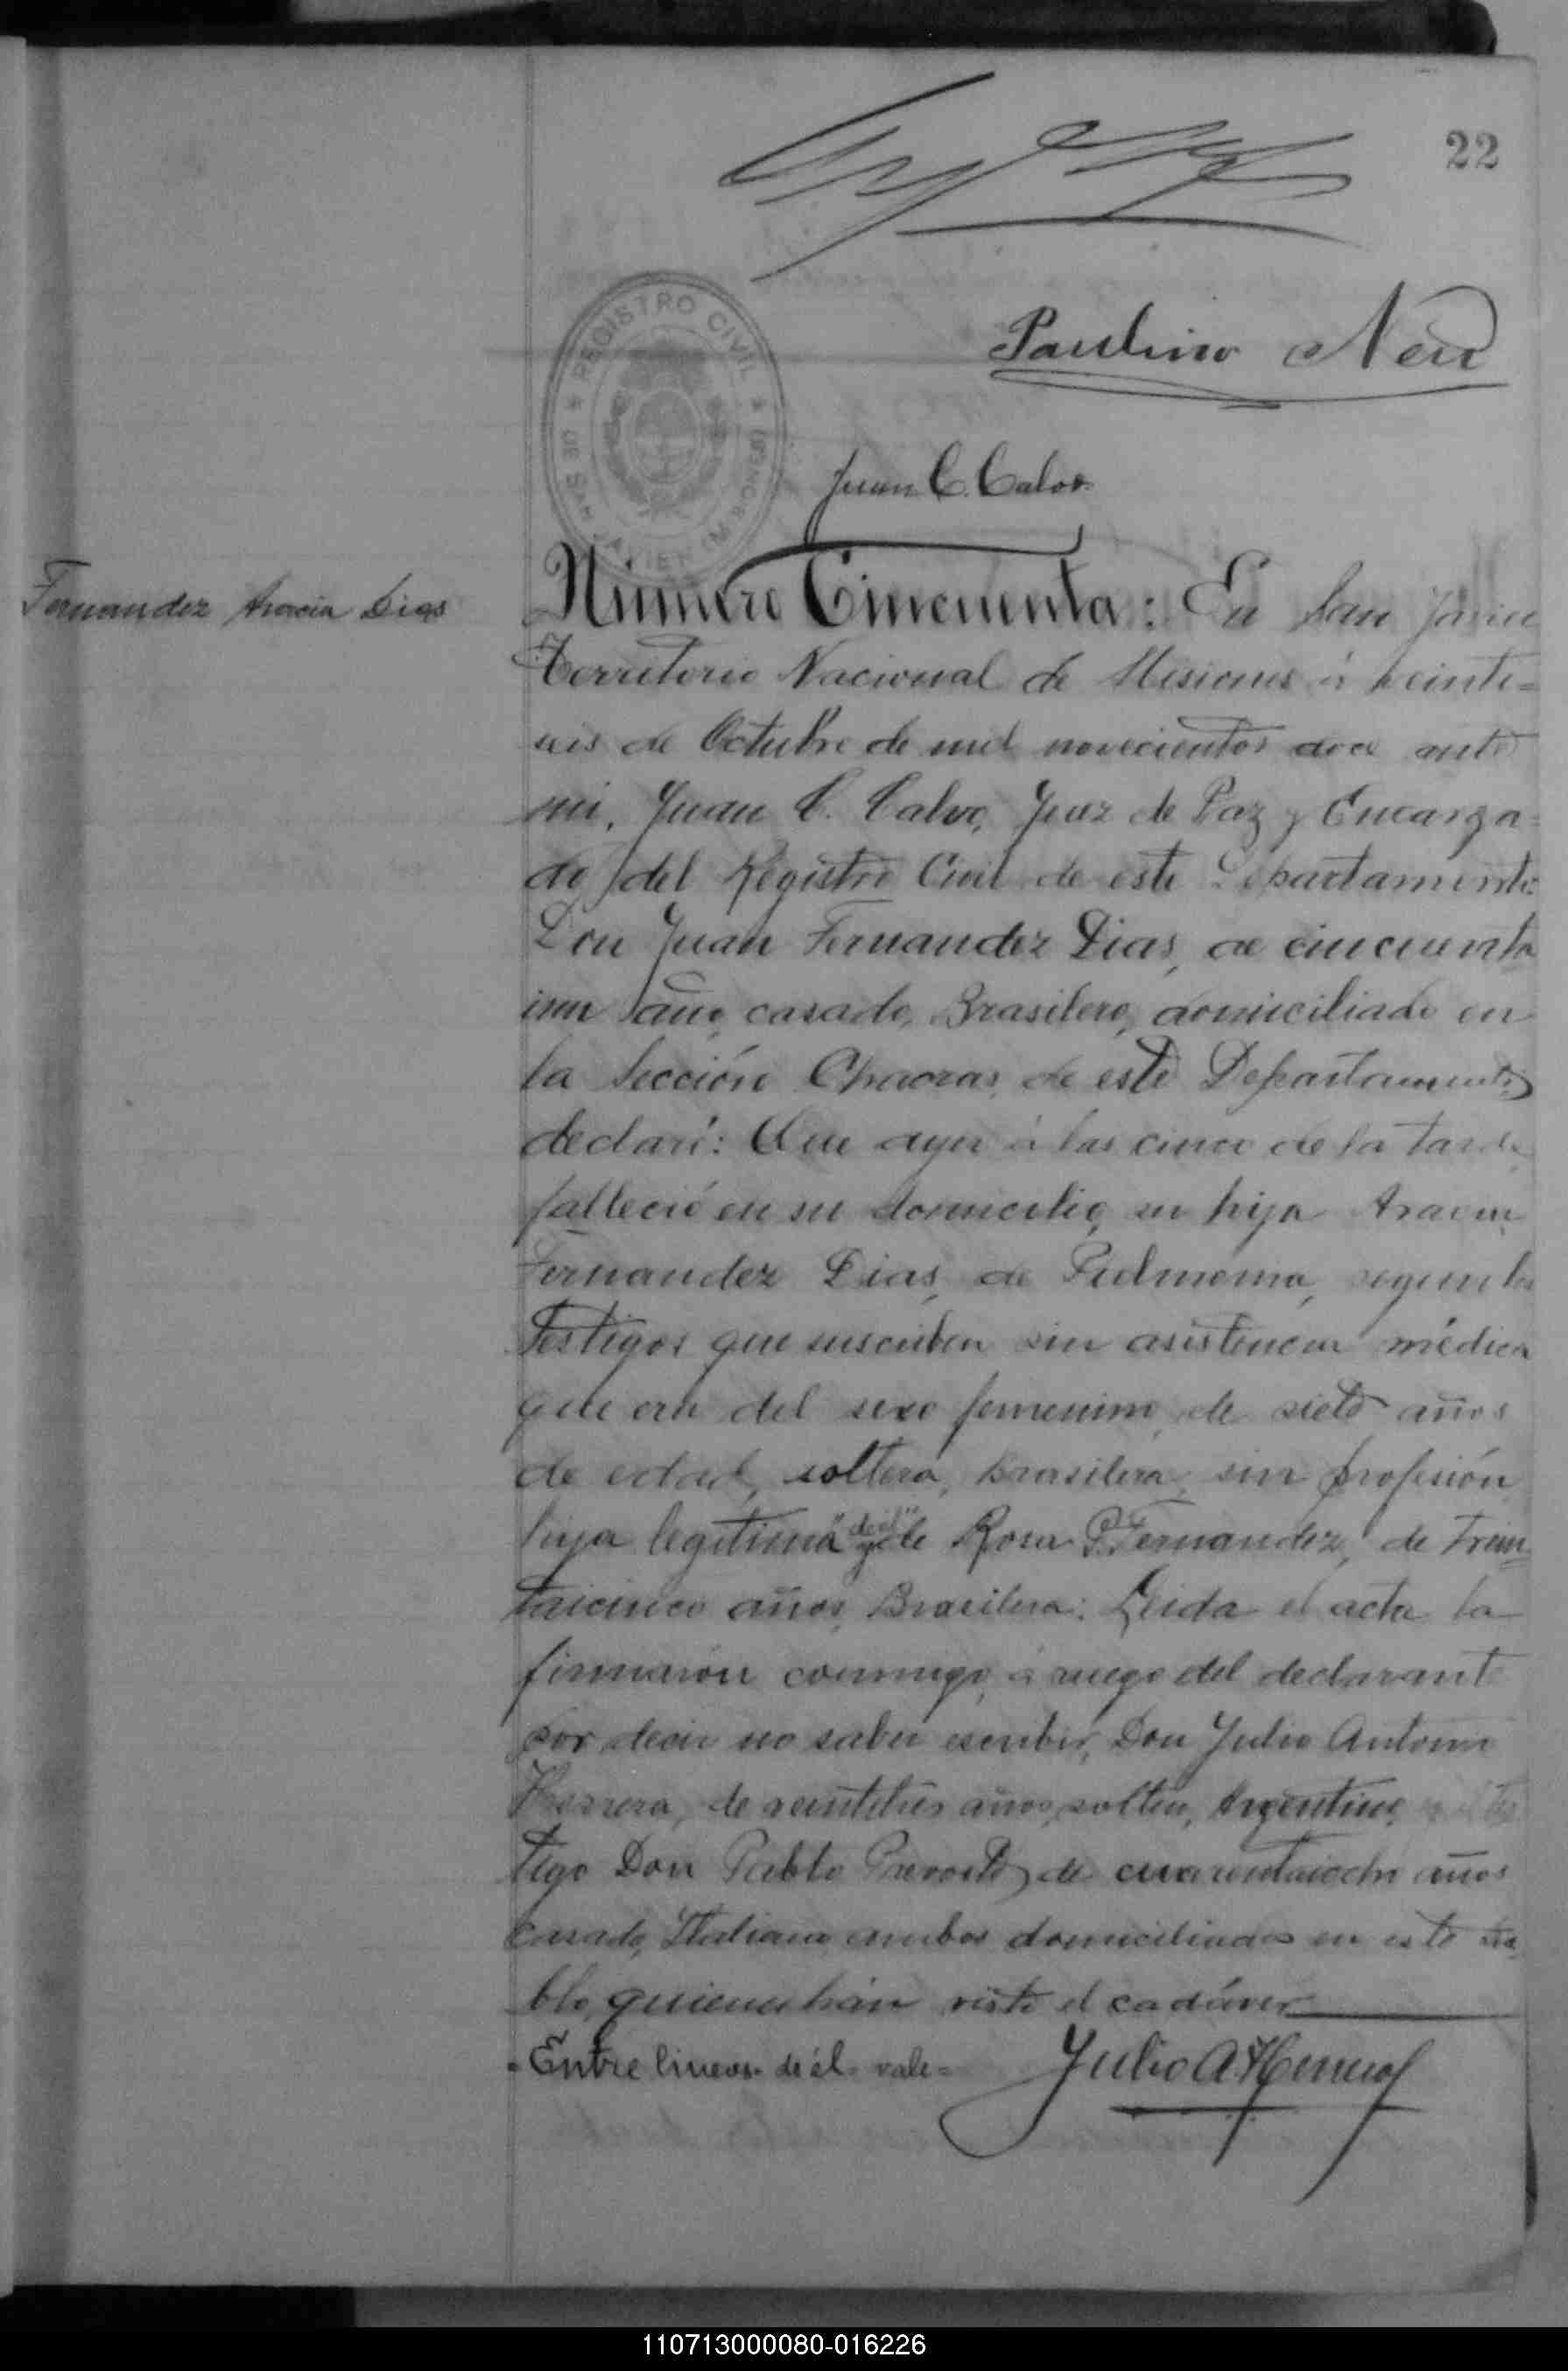 22
Paulino Neu
REGISTRO CIVIL
DE SAN JAVIER (MISIONES)
Juan C. Calvo
Fernandez Aracia Dias
Número Cincuenta: En San Javier
Territorio Nacional de Misiones á veinti=
seis de Octubre de mil novecientos doce ante
mi, Juan C. Calvo, Juez de Paz y Encarga=
do del Registro Civil de este Departamento
Don Juan Fernandez Dias, de cincuenta
iun año, casado, Brasilero, domiciliado en
la Sección Chacras, de este Departamento
declaró: Que ayer á las cinco de la tarde
falleció en su domicilio, su hija
Fernandez Dias, de Pulmonia, segun los
testigos que suscriben sin asistencia médica
que era del sexo femenino, de siete años
de edad, soltera, Brasilera, sin profesión
hija legitima "de él" y de Rosa P. Fernandez, de trein
taicinco años, Brasilera: Leida el acta la
firmaron conmigo, á ruego del declarante
por decir no saber escribir, Don Julio Antonio
Herrera, de veintitres años, soltero, Argentino, tes
tigo Don Pablo de cuarentaiocho años
casado, Italiano ambos domiciliados en este Pue
blo, quienes han visto el cadáver
=Entre lineas= de él= vale=
Julio A. Herrera
110713000080-016226